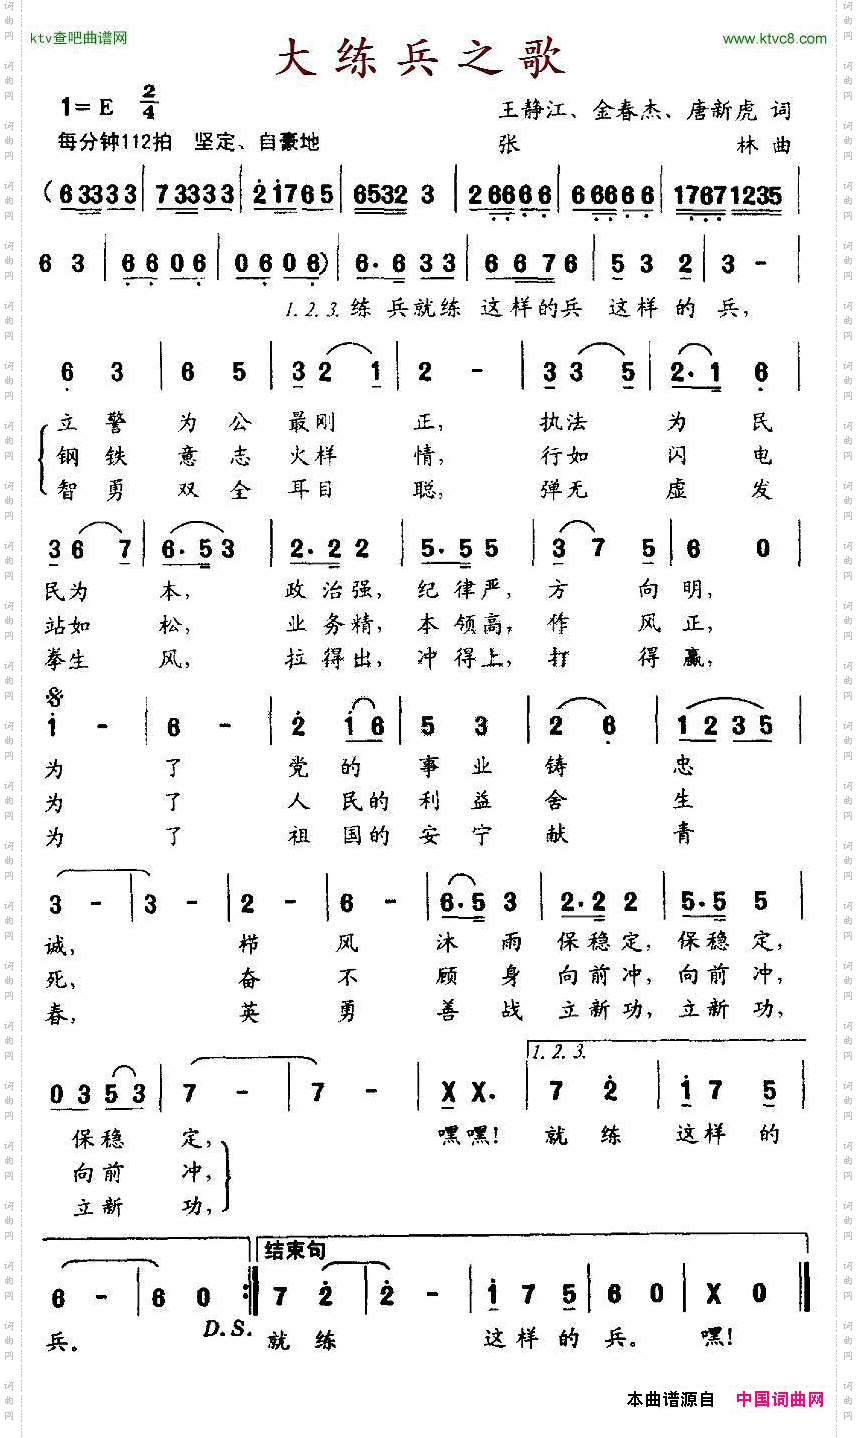 ktv查吧曲谱网
www.ktvc8.com
大练兵之歌
1=E 2/4
王静江、金春杰、唐新虎 词
每分钟112拍 坚定、自豪地
张 林 曲
(63333 | 73333 | 2 1765 | 6532 3 | 26666 | 66666 | 17671235 |
6 3 | 6606 | 0606) | 6·6 33 | 6676 | 5 3 2 | 3 - |
1.2.3. 练兵就练 这样的兵 这样的兵,
6 3 | 6 5 | 3 2 1 | 2 - | 3 3 5 | 2·1 6 |
立警为公最刚正,执法为民
钢铁意志火样情,行如闪电
智勇双全耳目聪,弹无虚发
3 6 7 | 6·53 | 2·22 2 | 5·55 5 | 3 7 5 | 6 0 |
民为本,政治强,纪律严,方向明,
站如松,业务精,本领高,作风正,
拳生风,拉得出,冲得上,打得赢,
1 - | 6 - | 2 16 | 5 3 | 2 6 | 1235 |
为了党的事业铸忠
为了人民的利益舍生
为了祖国的安宁献青
3 - | 3 - | 2 - | 6 - | 6·5 3 | 2·2 2 | 5·5 5 |
诚,栉风沐雨保稳定,保稳定,
死,奋不顾身向前冲,向前冲,
春,英勇善战立新功,立新功,
1.2.3.
0353 | 7 - | 7 - | X X· | 7 2 | 1 7 5 |
保稳定,嘿嘿!就练这样的
向前冲,
立新功,
结束句
6 - | 6 0 :| 7 2 | 2 - | 1 7 5 | 6 0 | X 0 ||
D.S.
兵。就练这样的兵。嘿!
本曲谱源自 中国词曲网
词曲网